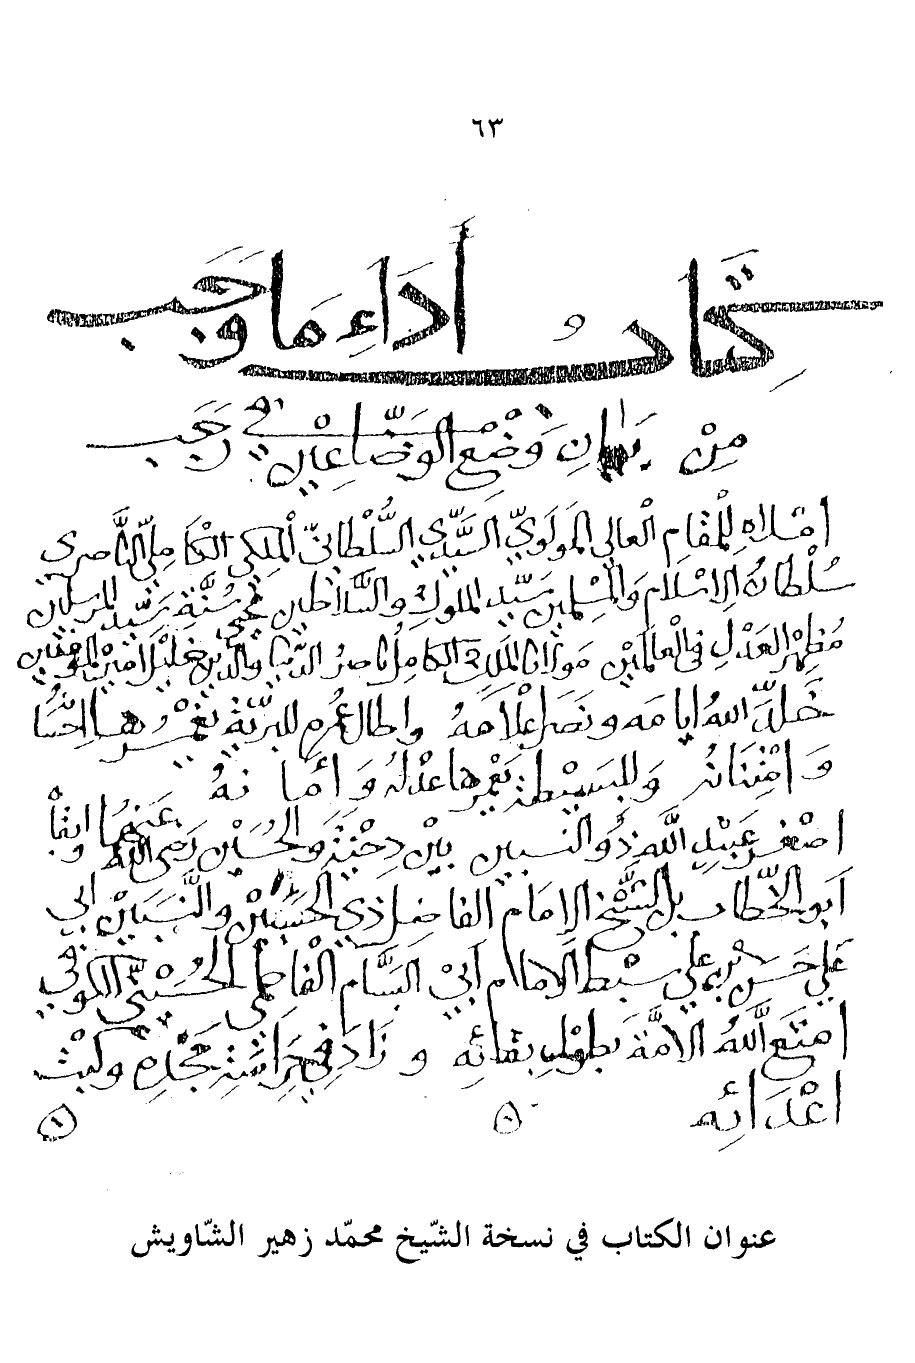 ٦٣
كتاب أداء ما وجب
من بيان وضع الوضّاعين في رجب
املاه للمقام العالي المولوي السيّدي السّلطاني الملكي الكاملي النّاصري
سلطان الاسلام والمسلمين سيّد الملوك والسّلاطين محيي سنّة سيّد المرسلين
مظهر العدل في العالمين مولانا الملك الكامل ناصر الدنيا والدين خليل امير المؤمنين
خلّد الله ايامه ونصر اعلامه واطال عمره للبريّة يغمرها احسانا
وامتنانه وللبسيطة يعمرها عدله وأمانه
اصغر عبيد الله ذو النسبين بين دحية والحسين رضي الله عنهما
أبو الخطّاب بل الشّيخ الامام الفاضل ذي الحسبين والنّسبين ابي
علي حسن بن علي سبط الامام أبي البسّام الفاطمي الحسيني الكوفي
امتع الله الامّة بطول بقائه وزاد في حراسة مجده وكبت
اعدائه
عنوان الكتاب في نسخة الشّيخ محمّد زهير الشّاويش